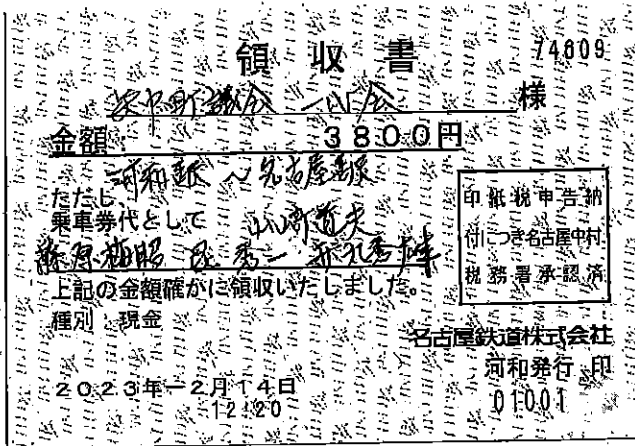 領収書 74609
議会 一山会 様
金額 3800円
河和駅 〜 名古屋駅
ただし
乗車券代として 山崎道夫
上記の金額確かに領収いたしました。
種別 現金
印紙税申告納
付につき名古屋中村
税務署承認済
名古屋鉄道株式会社
河和発行 印
2023年-2月14日 01001
12:20